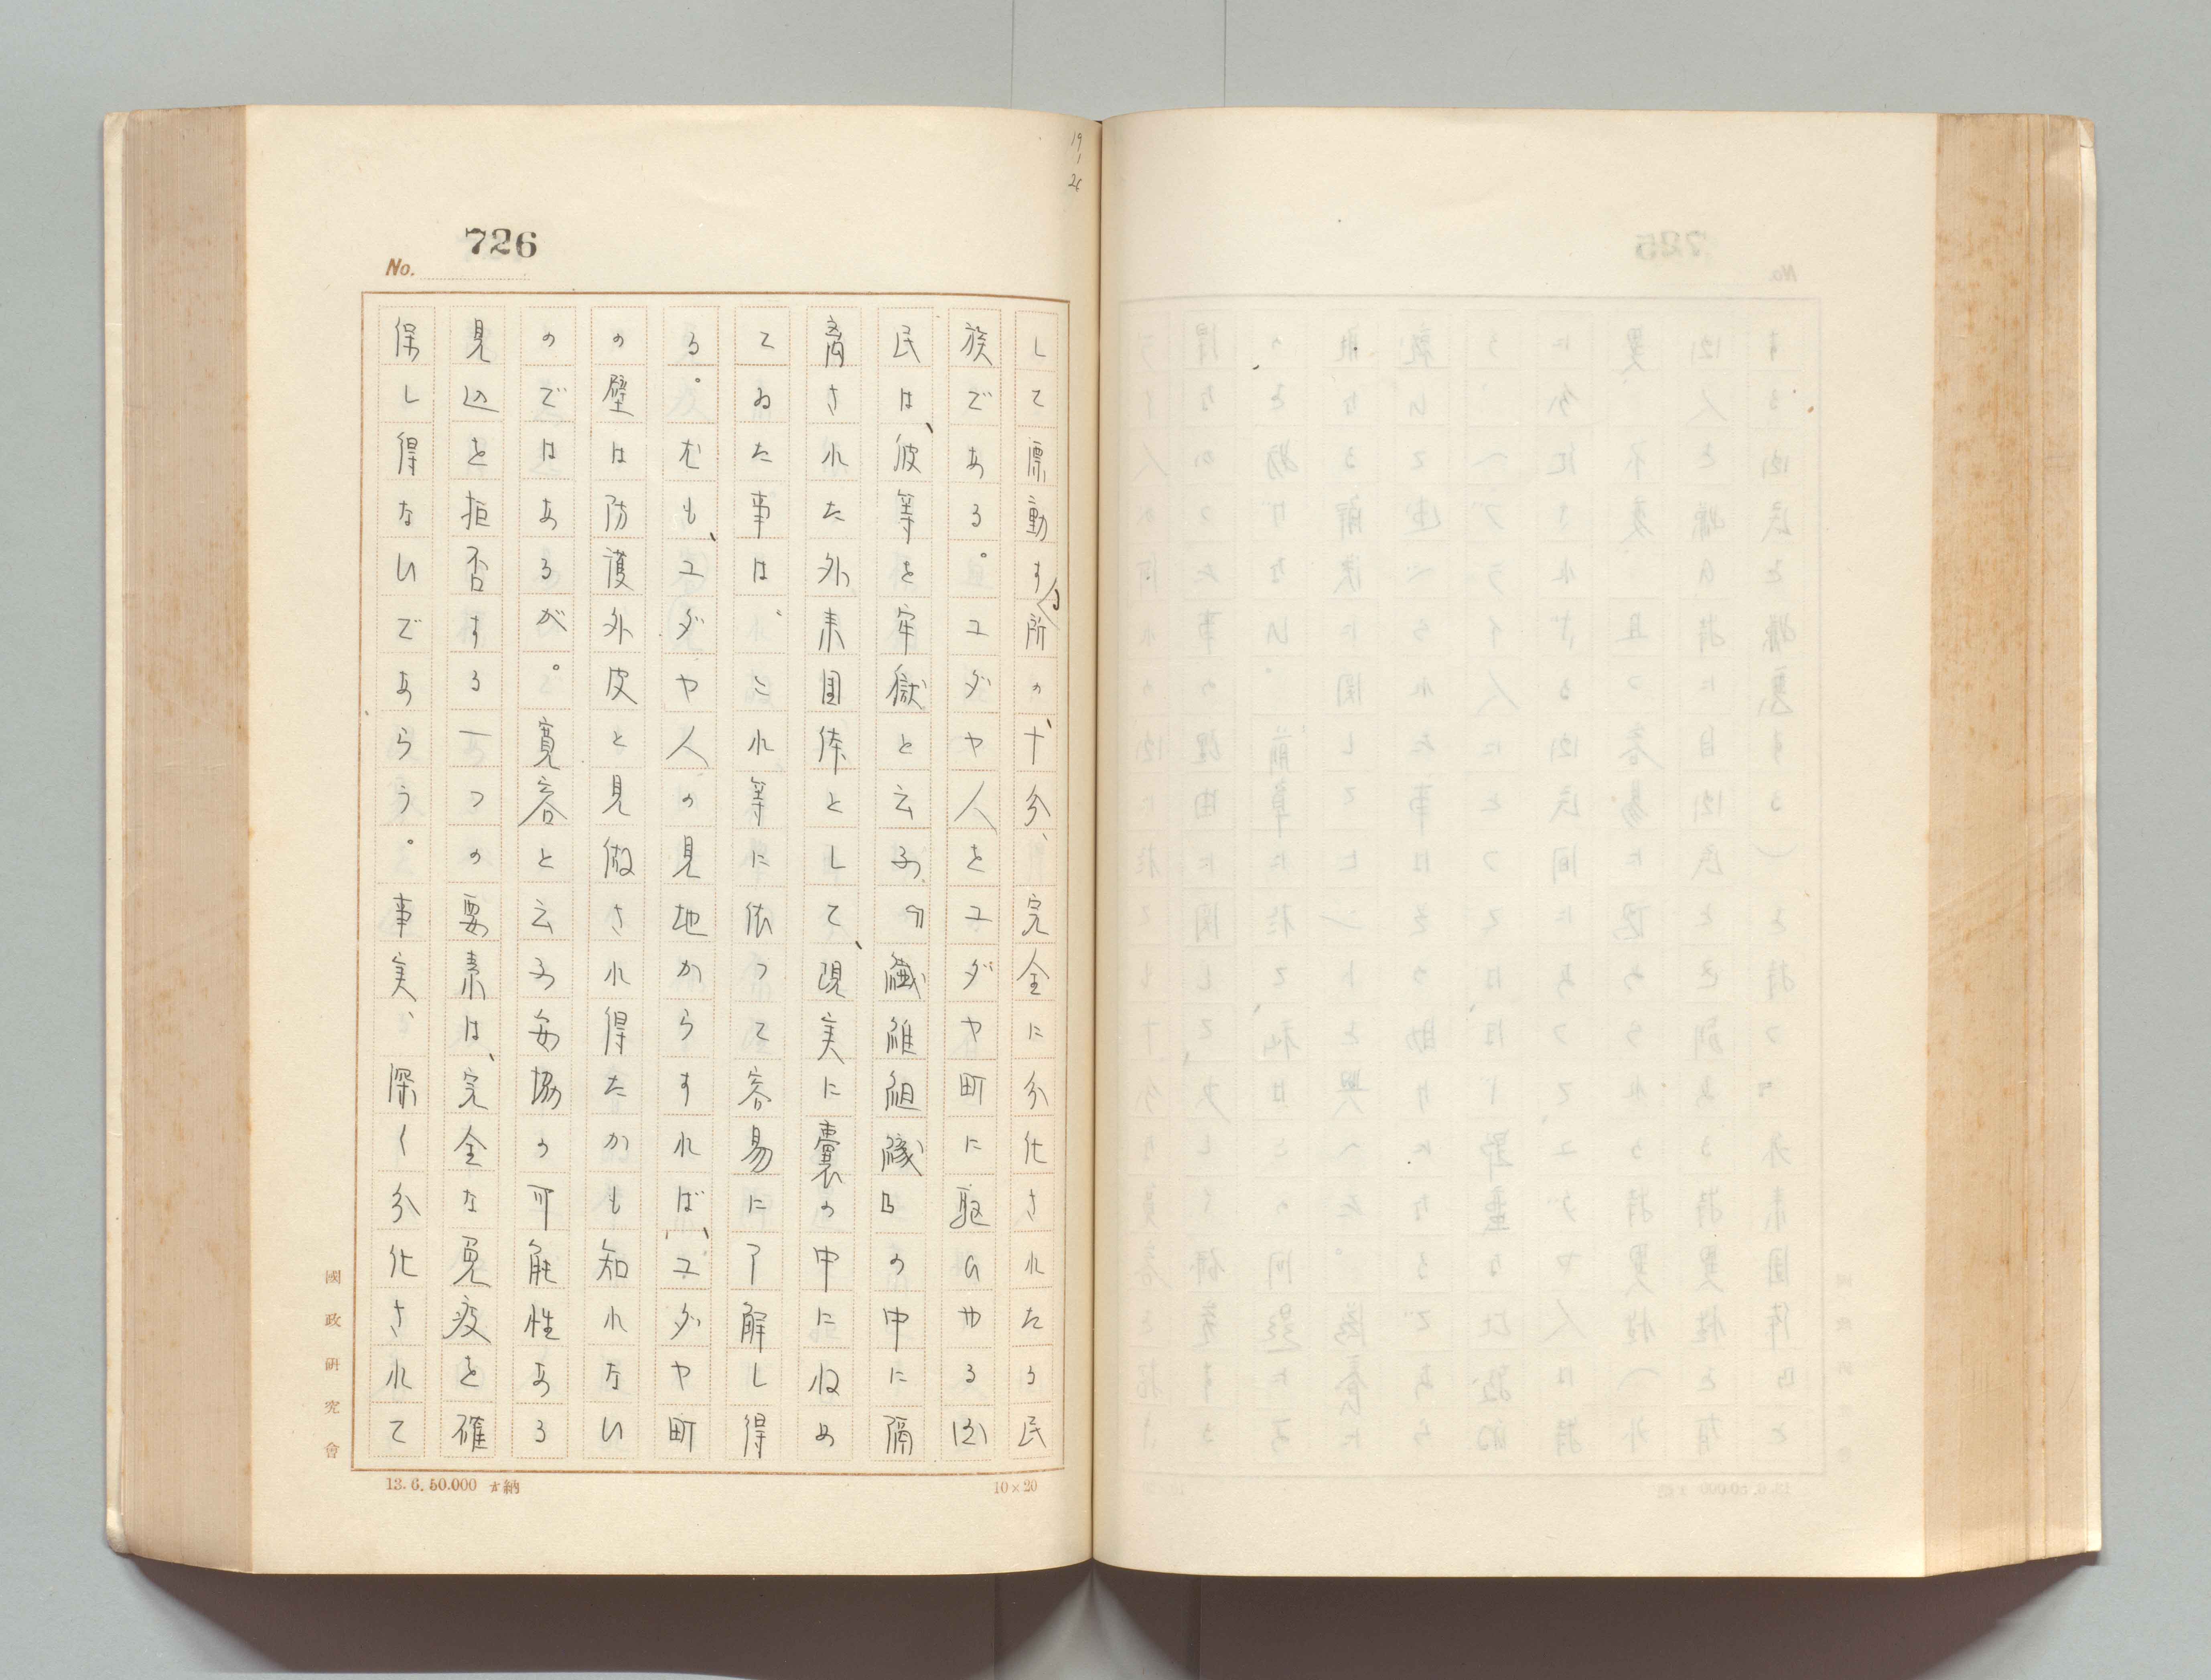 19/1/26
726
No.
して原動する所の十分、完全に分化されたる民
族である。ユダヤ人をユダヤ町に駆ひやる国
民は、彼等を牢獄と云ふ『繊維組織』の中に隔
離された外来団体として、現実に嚢の中に収め
てゐた事は、これ等に依つて容易に了解し得
る。尤も、ユダヤ人の見地からすれば、ユダヤ町
の壁は防護外皮と見做され得たかも知れない
のではあるが。寛容と云ふ妥協の可能性ある
見込を拒否する一つの要素は、完全な免疫を確
保し得ないであらう。事実、深く分化されて
國政研究會
13.6.50.000 納
10×20